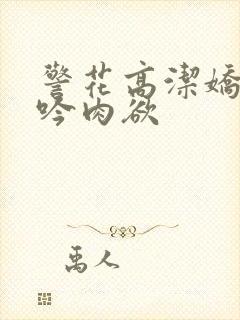 警花高潔嬌
吟肉欲
禹人